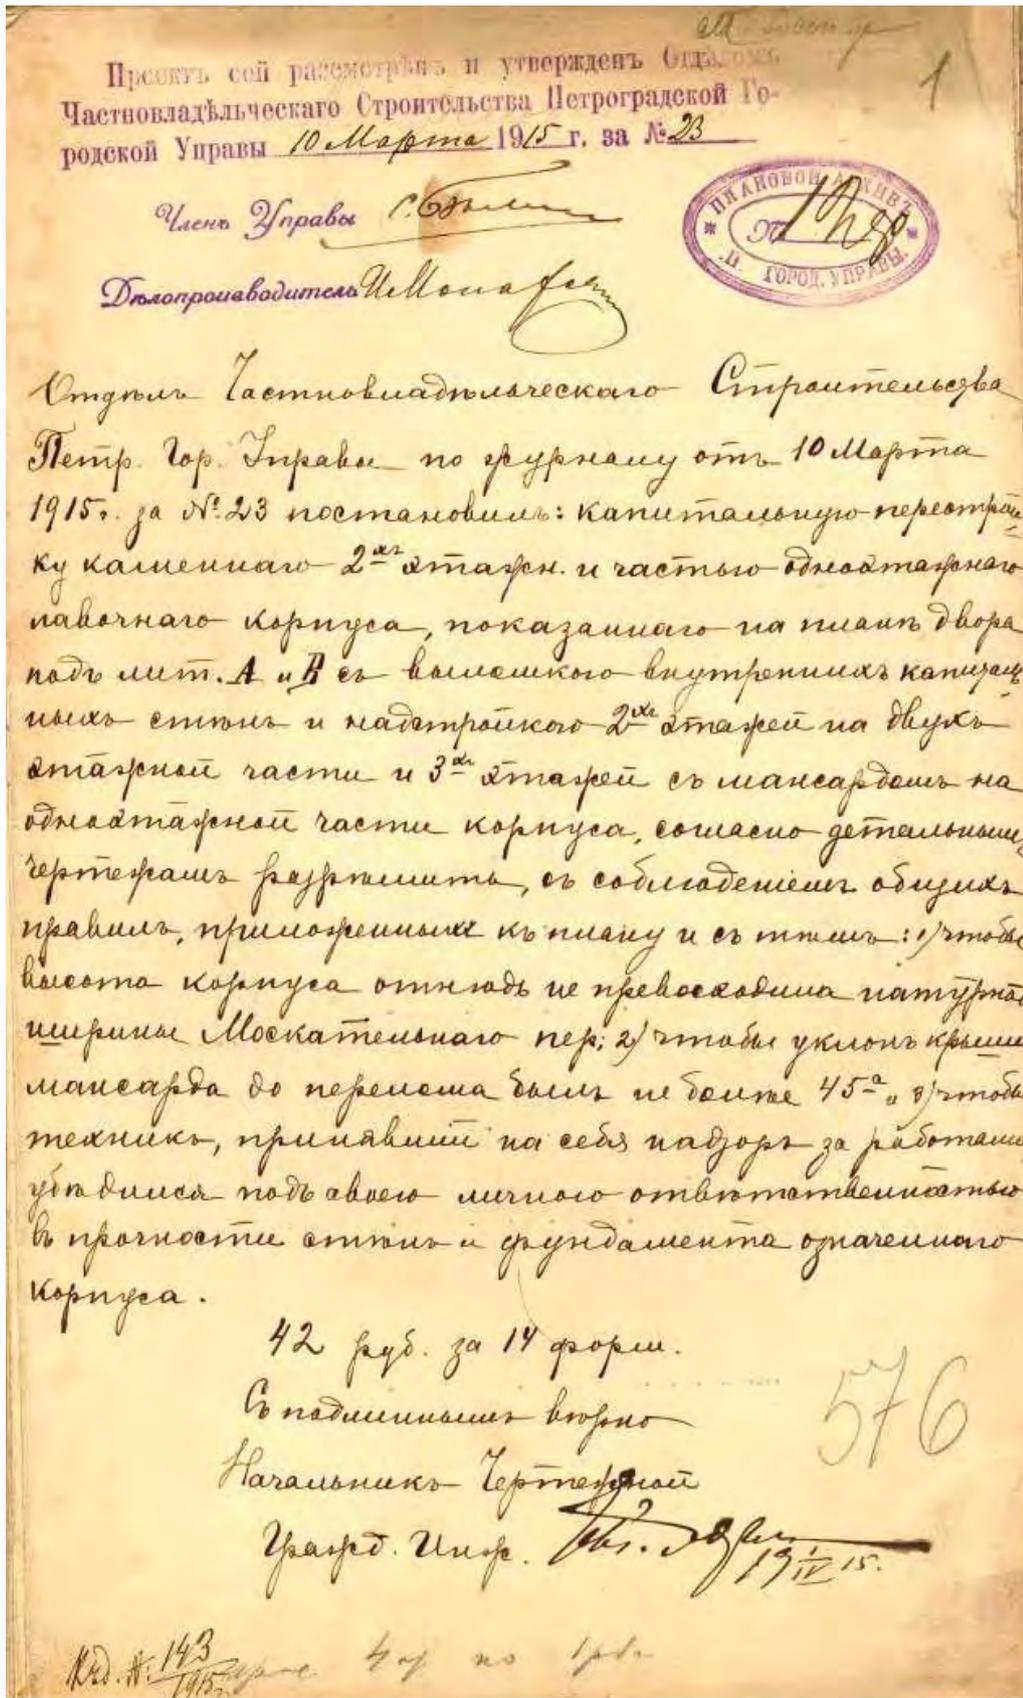 1
Проектъ сей разсмотрѣнъ и утвержденъ Отдѣломъ
Частновладѣльческаго Строительства Петроградской Го-
родской Управы 10 Марта 1915 г. за № 23
Членъ Управы
ПЛАНОВОЙ АРХИВЪ
П. ГОРОД. УПРАВЫ.
Дѣлопроизводитель
Отдѣлъ Частновладѣльческаго Строительства
Петр. Гор. Управы по журналу отъ 10 Марта
1915 г. за №. 23 постановилъ: капитальную перестрой-
ку каменнаго 2хъ этажн. и частью одноэтажнаго
лавочнаго корпуса, показаннаго на планѣ двора
подъ лит. А и В съ выломкою внутреннихъ капиталь-
ныхъ стѣнъ и надстройкою 2хъ этажей на двухъ
этажной части и 3хъ этажей съ мансардомъ на
одноэтажной части корпуса, согласно детальнымъ
чертежамъ разрѣшить, съ соблюденіемъ общихъ
правилъ, приложенныхъ къ плану и съ тѣмъ: 1) чтобы
высота корпуса отнюдь не превосходила натурной
ширины Москательнаго пер; 2) чтобы уклонъ крыши
мансарда до перелома былъ не болѣе 45° и 3) чтобы
техникъ, принявшій на себя надзоръ за работами
убѣдился подъ своею личною отвѣтственностью
въ прочности стѣнъ и фундамента означеннаго
корпуса.
42 руб. за 14 форм.
Съ подлиннымъ вѣрно
576
Начальникъ Чертежной
Гражд. Инж.
19 1/IV 15.
№: 143/1915 г.
4 по 1 рб.